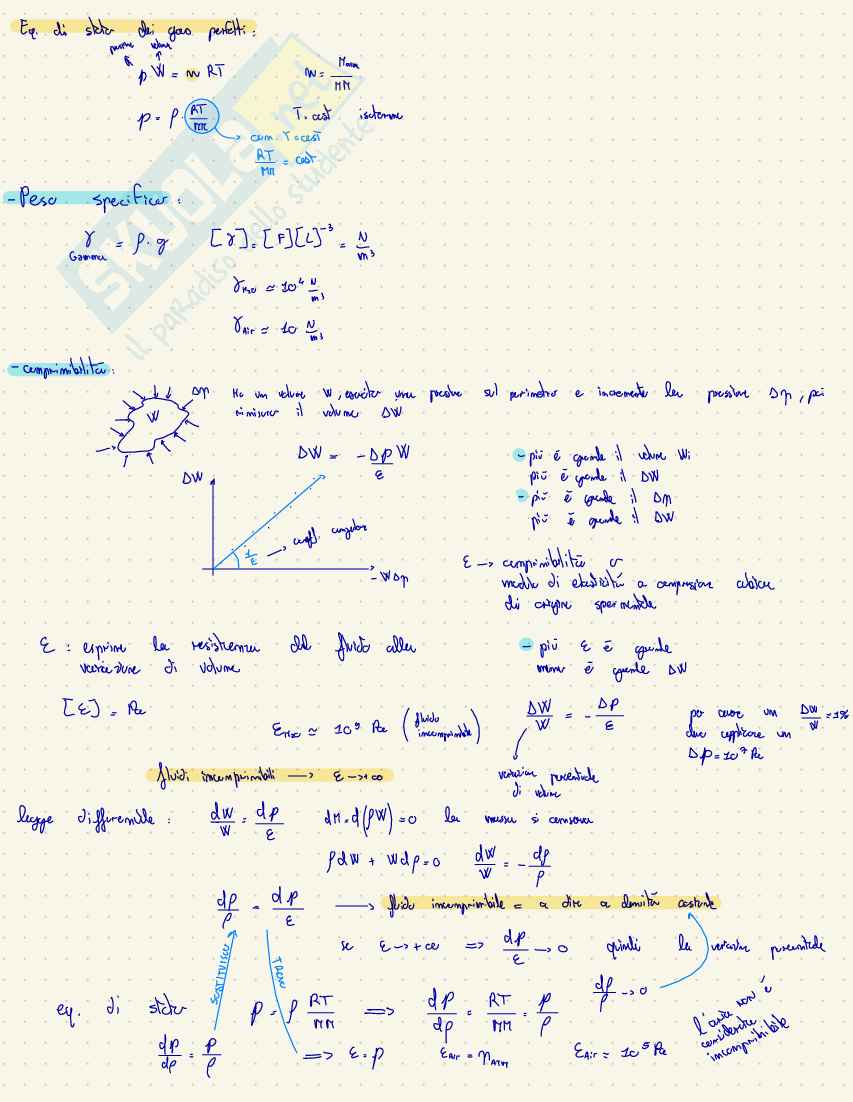 Eq. di stato dei gas perfetti:
pressione volume
p W = n RT
n = Massa / MM
p = ρ · RT/MM
T = cost isoterma
con T = cost
RT/MM = cost
SKUOLA.net
il paradiso dello studente
- Peso specifico:
γ = ρ · g [γ] = [F][L]⁻³ = N/m³
Gamma
γH2O ≃ 10⁴ N/m³
γAir ≃ 10 N/m³
- comprimibilità:
W Δp
Ho un volume W, esercito una pressione sul perimetro e incremento la pressione Δp, poi
rimisuro il volume ΔW
ΔW = - Δp/ε W
ΔW
1/ε → coeff. angolare
- WΔp
- più è grande il volume Wi
più è grande il ΔW
- più è grande il Δp
più è grande il ΔW
ε → comprimibilità o
modulo di elasticità a compressione cubica
di origine sperimentale
ε : esprime la resistenza del fluido alla
variazione di volume
- più ε è grande
meno è grande ΔW
[ε] = Pa
εH2O ≃ 10⁹ Pa (fluido incomprimibile)
ΔW/W = - Δp/ε
variazione percentuale
di volume
per avere un ΔW/W = 1%
devo applicare un
Δp = 10⁷ Pa
fluidi incomprimibili → ε → +∞
legge differenziale: dW/W = dp/ε dM = d(ρW) = 0 la massa si conserva
ρdW + Wdρ = 0 dW/W = - dρ/ρ
dρ/ρ = dp/ε → fluido incomprimibile = a dire a densità costante
se ε → +∞ ⇒ dp/ε → 0 quindi la variazione percentuale
dρ/ρ → 0
SOSTITUISCO
TROVO
eq. di stato p = ρ RT/MM ⇒ dp/dρ = RT/MM = p/ρ
dp/dρ = p/ρ ⇒ ε = p εAir = pATM εAir ≃ 10⁵ Pa
l'aria non è
considerata
incomprimibile